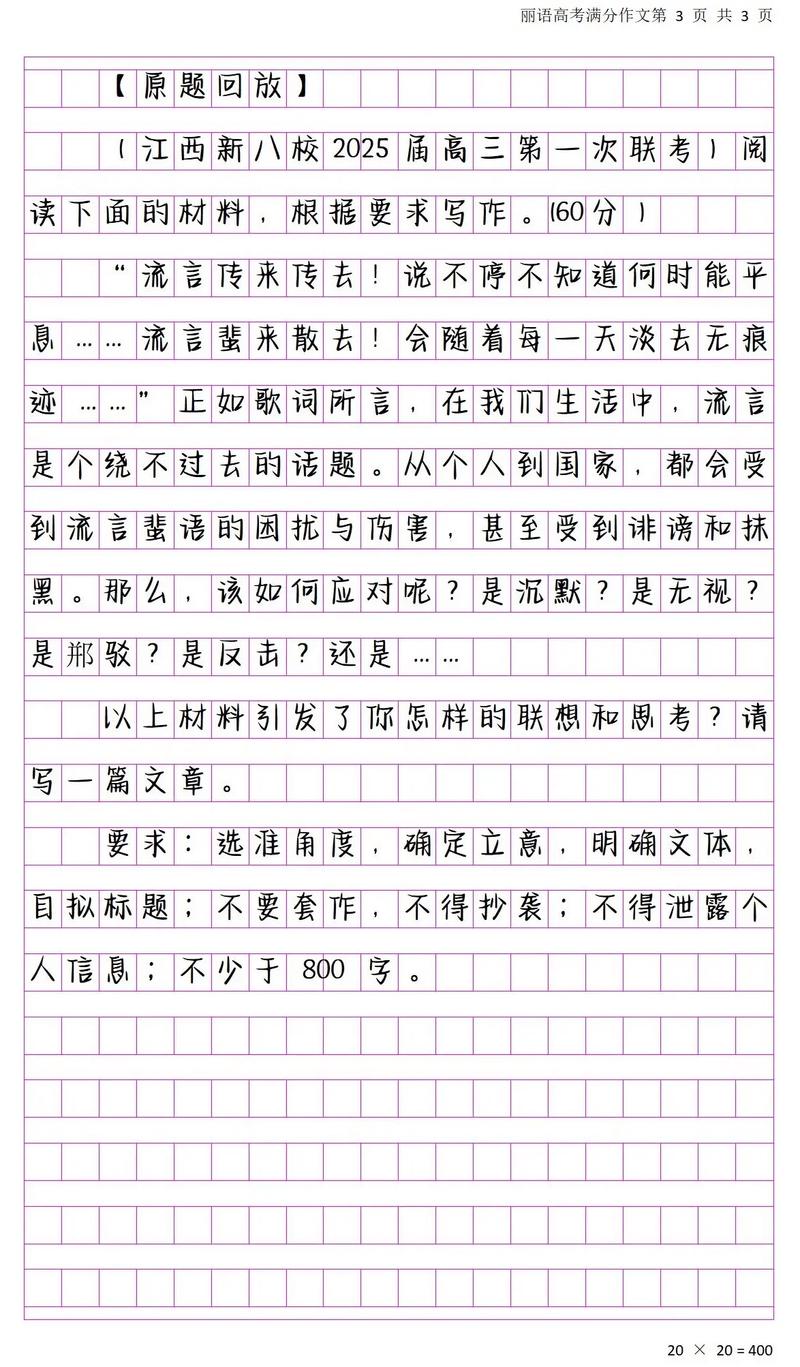 丽语高考满分作文第 3 页 共 3 页
【原题回放】
(江西新八校2025届高三第一次联考)阅
读下面的材料,根据要求写作。(60分)
“流言传来传去!说不停不知道何时能平
息……流言蜚来散去!会随着每一天淡去无痕
迹……”正如歌词所言,在我们生活中,流言
是个绕不过去的话题。从个人到国家,都会受
到流言蜚语的困扰与伤害,甚至受到诽谤和抹
黑。那么,该如何应对呢?是沉默?是无视?
是 驳?是反击?还是……
以上材料引发了你怎样的联想和思考?请
写一篇文章。
要求:选准角度,确定立意,明确文体,
自拟标题;不要套作,不得抄袭;不得泄露个
人信息;不少于800字。
20 × 20 = 400